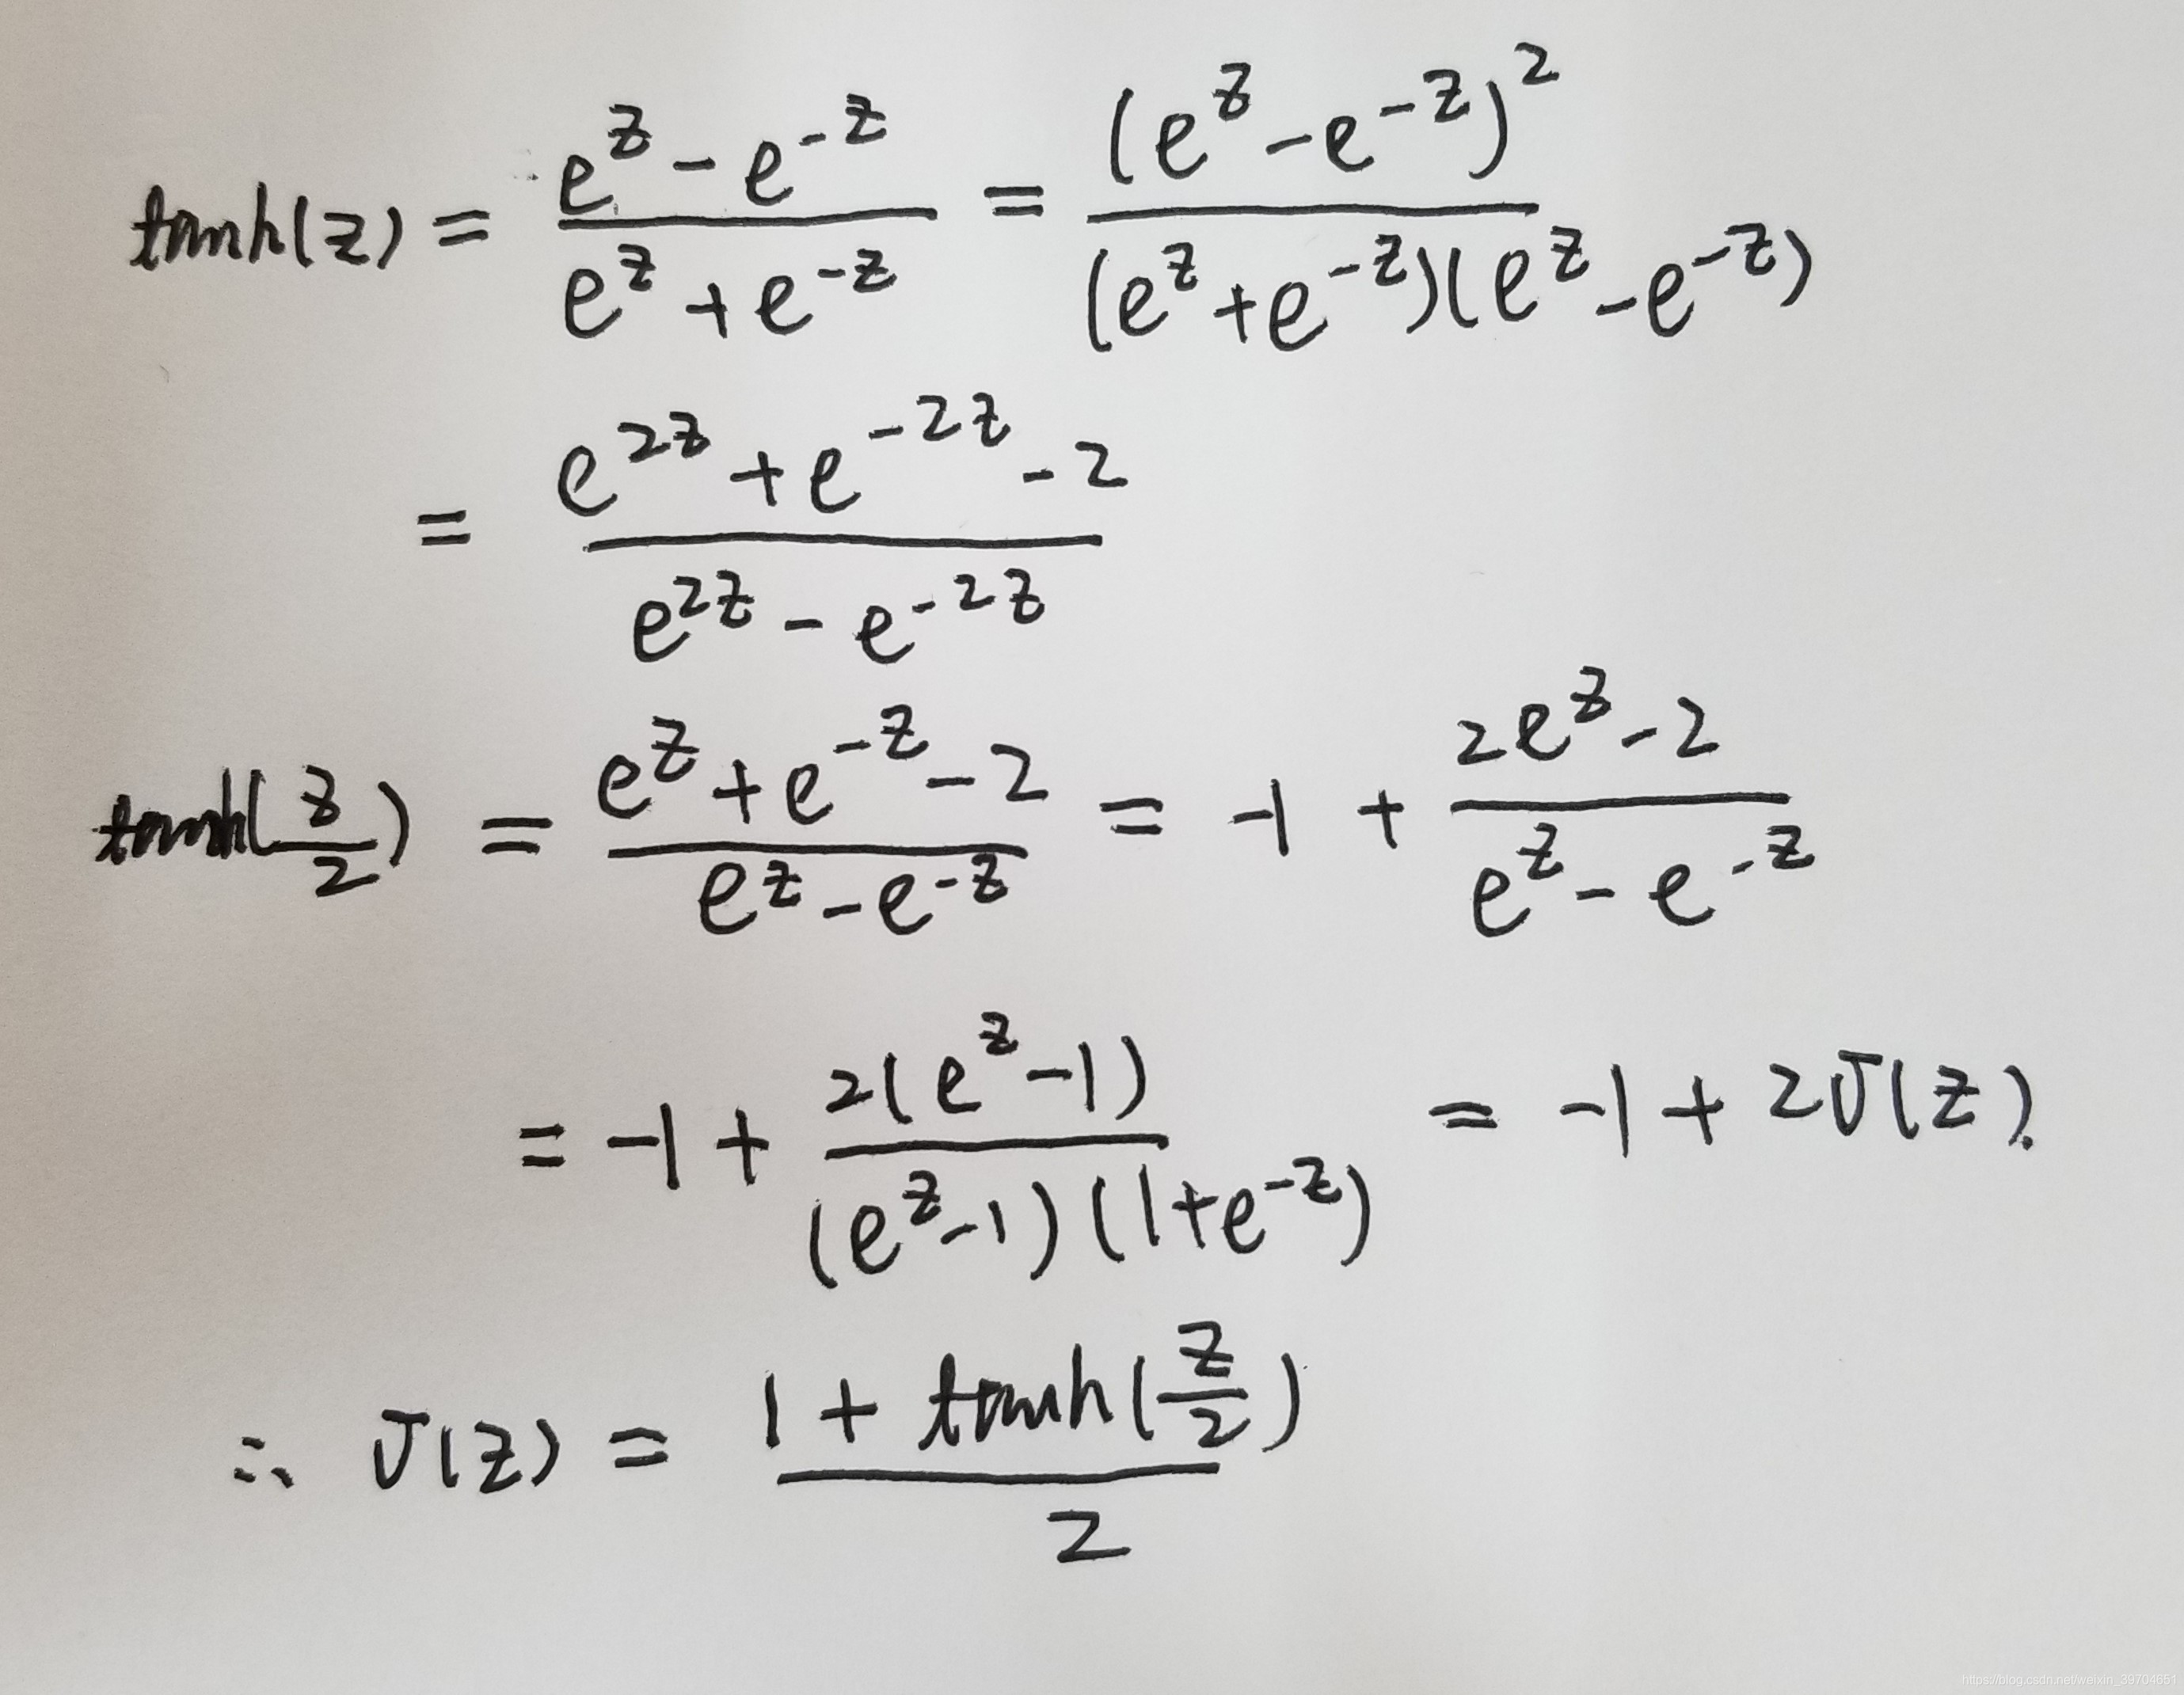 tanh(z) = \frac{e^z - e^{-z}}{e^z + e^{-z}} = \frac{(e^z - e^{-z})^2}{(e^z + e^{-z})(e^z - e^{-z})}
= \frac{e^{2z} + e^{-2z} - 2}{e^{2z} - e^{-2z}}
tanh(\frac{z}{2}) = \frac{e^z + e^{-z} - 2}{e^z - e^{-z}} = -1 + \frac{2e^z - 2}{e^z - e^{-z}}
= -1 + \frac{2(e^z - 1)}{(e^z - 1)(1 + e^{-z})} = -1 + 2σ(z).
∴ σ(z) = \frac{1 + tanh(\frac{z}{2})}{2}
https://blog.csdn.net/weixin_39704651